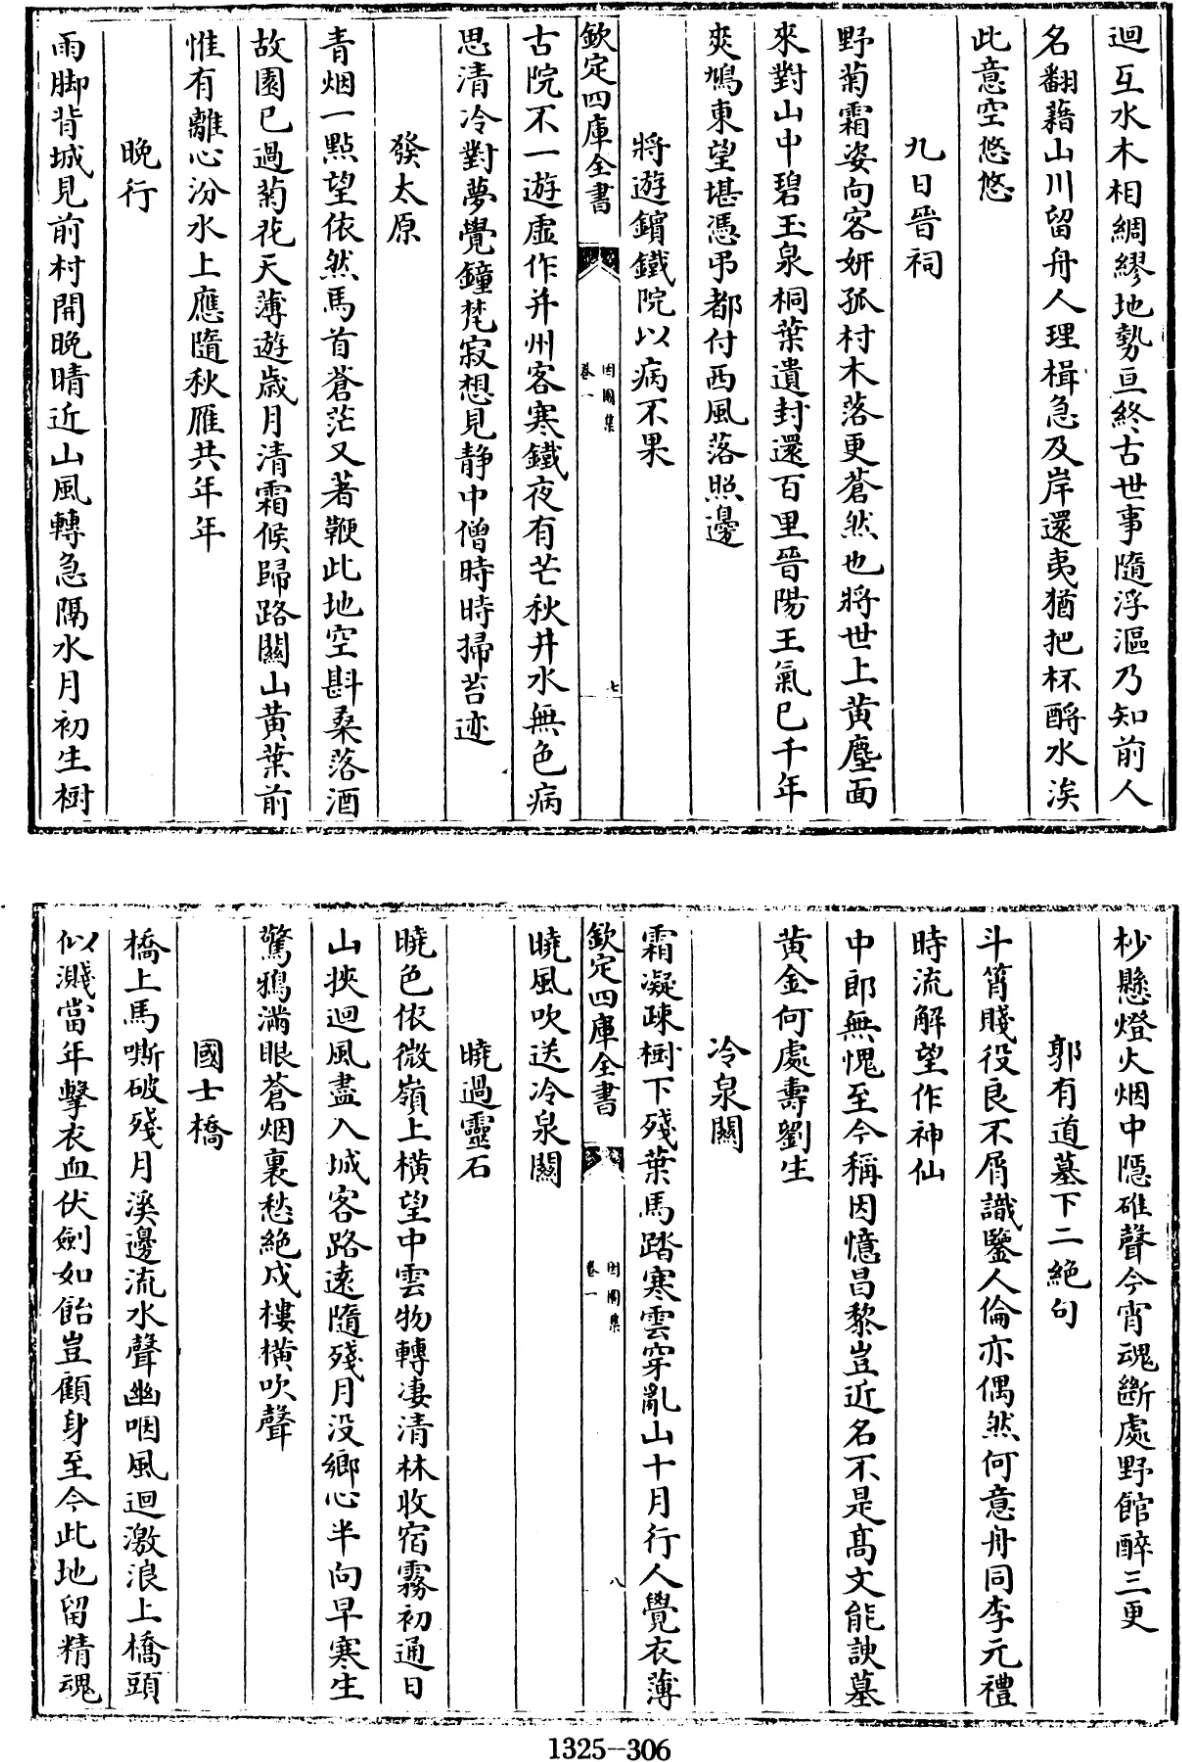 迴互水木相綢繆地勢亘終古世事隨浮漚乃知前人
名翻藉山川留舟人理楫急及岸還夷猶把杯酹水涘
此意空悠悠
九日晉祠
野菊霜姿向客妍孤村木落更蒼然也將世上黄塵面
來對山中碧玉泉桐葉遺封還百里晉陽王氣已千年
爽鳩東望堪憑弔都付西風落照邊
將遊鑌鐵院以病不果
欽定四庫全書
因園集
卷一
七
古院不一遊虛作并州客寒鐵夜有芒秋井水無色病
思清冷對夢覺鐘梵寂想見静中僧時時掃苔迹
發太原
青烟一點望依然馬首蒼茫又著鞭此地空斟桑落酒
故園已過菊花天薄遊歲月清霜候歸路關山黄葉前
惟有離心汾水上應隨秋雁共年年
晚行
雨脚背城見前村開晚晴近山風轉急隔水月初生樹
杪懸燈火烟中隱碓聲今宵魂斷處野館醉三更
郭有道墓下二絶句
斗筲賤役良不屑識鑒人倫亦偶然何意舟同李元禮
時流解望作神仙
中郎無愧至今稱因憶昌黎豈近名不是髙文能諛墓
黄金何處壽劉生
冷泉關
霜凝疎樹下殘葉馬踏寒雲穿亂山十月行人覺衣薄
欽定四庫全書
因園集
卷一
八
曉風吹送冷泉關
曉過靈石
曉色依微嶺上横望中雲物轉淒清林收宿霧初通日
山挾迴風盡入城客路遠隨殘月没鄉心半向早寒生
驚鴉滿眼蒼烟裏愁絶戍樓横吹聲
國士橋
橋上馬嘶破殘月溪邊流水聲幽咽風迴激浪上橋頭
似濺當年擊衣血伏劍如飴豈顧身至今此地留精魂
1325—306